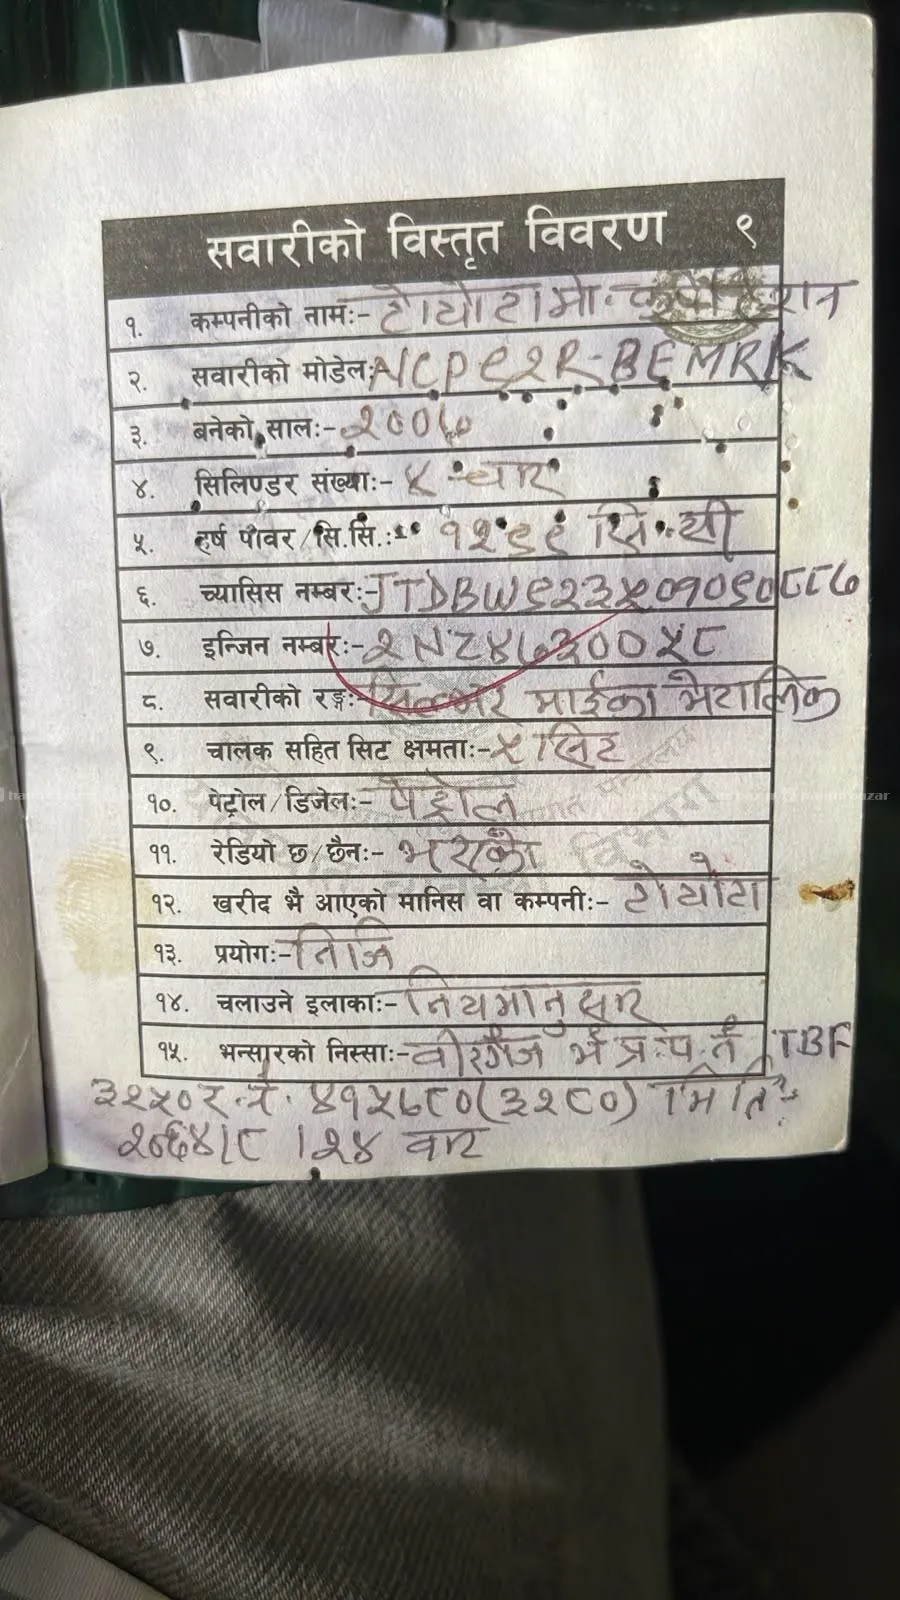 सवारीको विस्तृत विवरण ९
१. कम्पनीको नामः- टोयोटा मो. कर्पोरेशन
२. सवारीको मोडेलः- NCP९२R-BEMRK
३. बनेको सालः- २००७
४. सिलिण्डर संख्याः- ४ चार
५. हर्ष पावर/सि.सि.ः- १२९९ सि.सी
६. च्यासिस नम्बरः- JTDBW९२३५०१०९०८८७
७. इन्जिन नम्बरः- २NZ४७३००५८
८. सवारीको रङ्गः- सिल्भर माईका मेटालिक
९. चालक सहित सिट क्षमताः- ५ सिट
१०. पेट्रोल/डिजेलः- पेट्रोल
११. रेडियो छ/छैनः- भएको
१२. खरीद भै आएको मानिस वा कम्पनीः- टोयोटा
१३. प्रयोगः- निजि
१४. चलाउने इलाकाः- नियमानुसार
१५. भन्सारको निस्साः- वीरगंज भं प्र.प.नं TBF
३२५०र.नं. ४१५७८०(३२८०) मितिः-
२०६४।८।२४ बाट